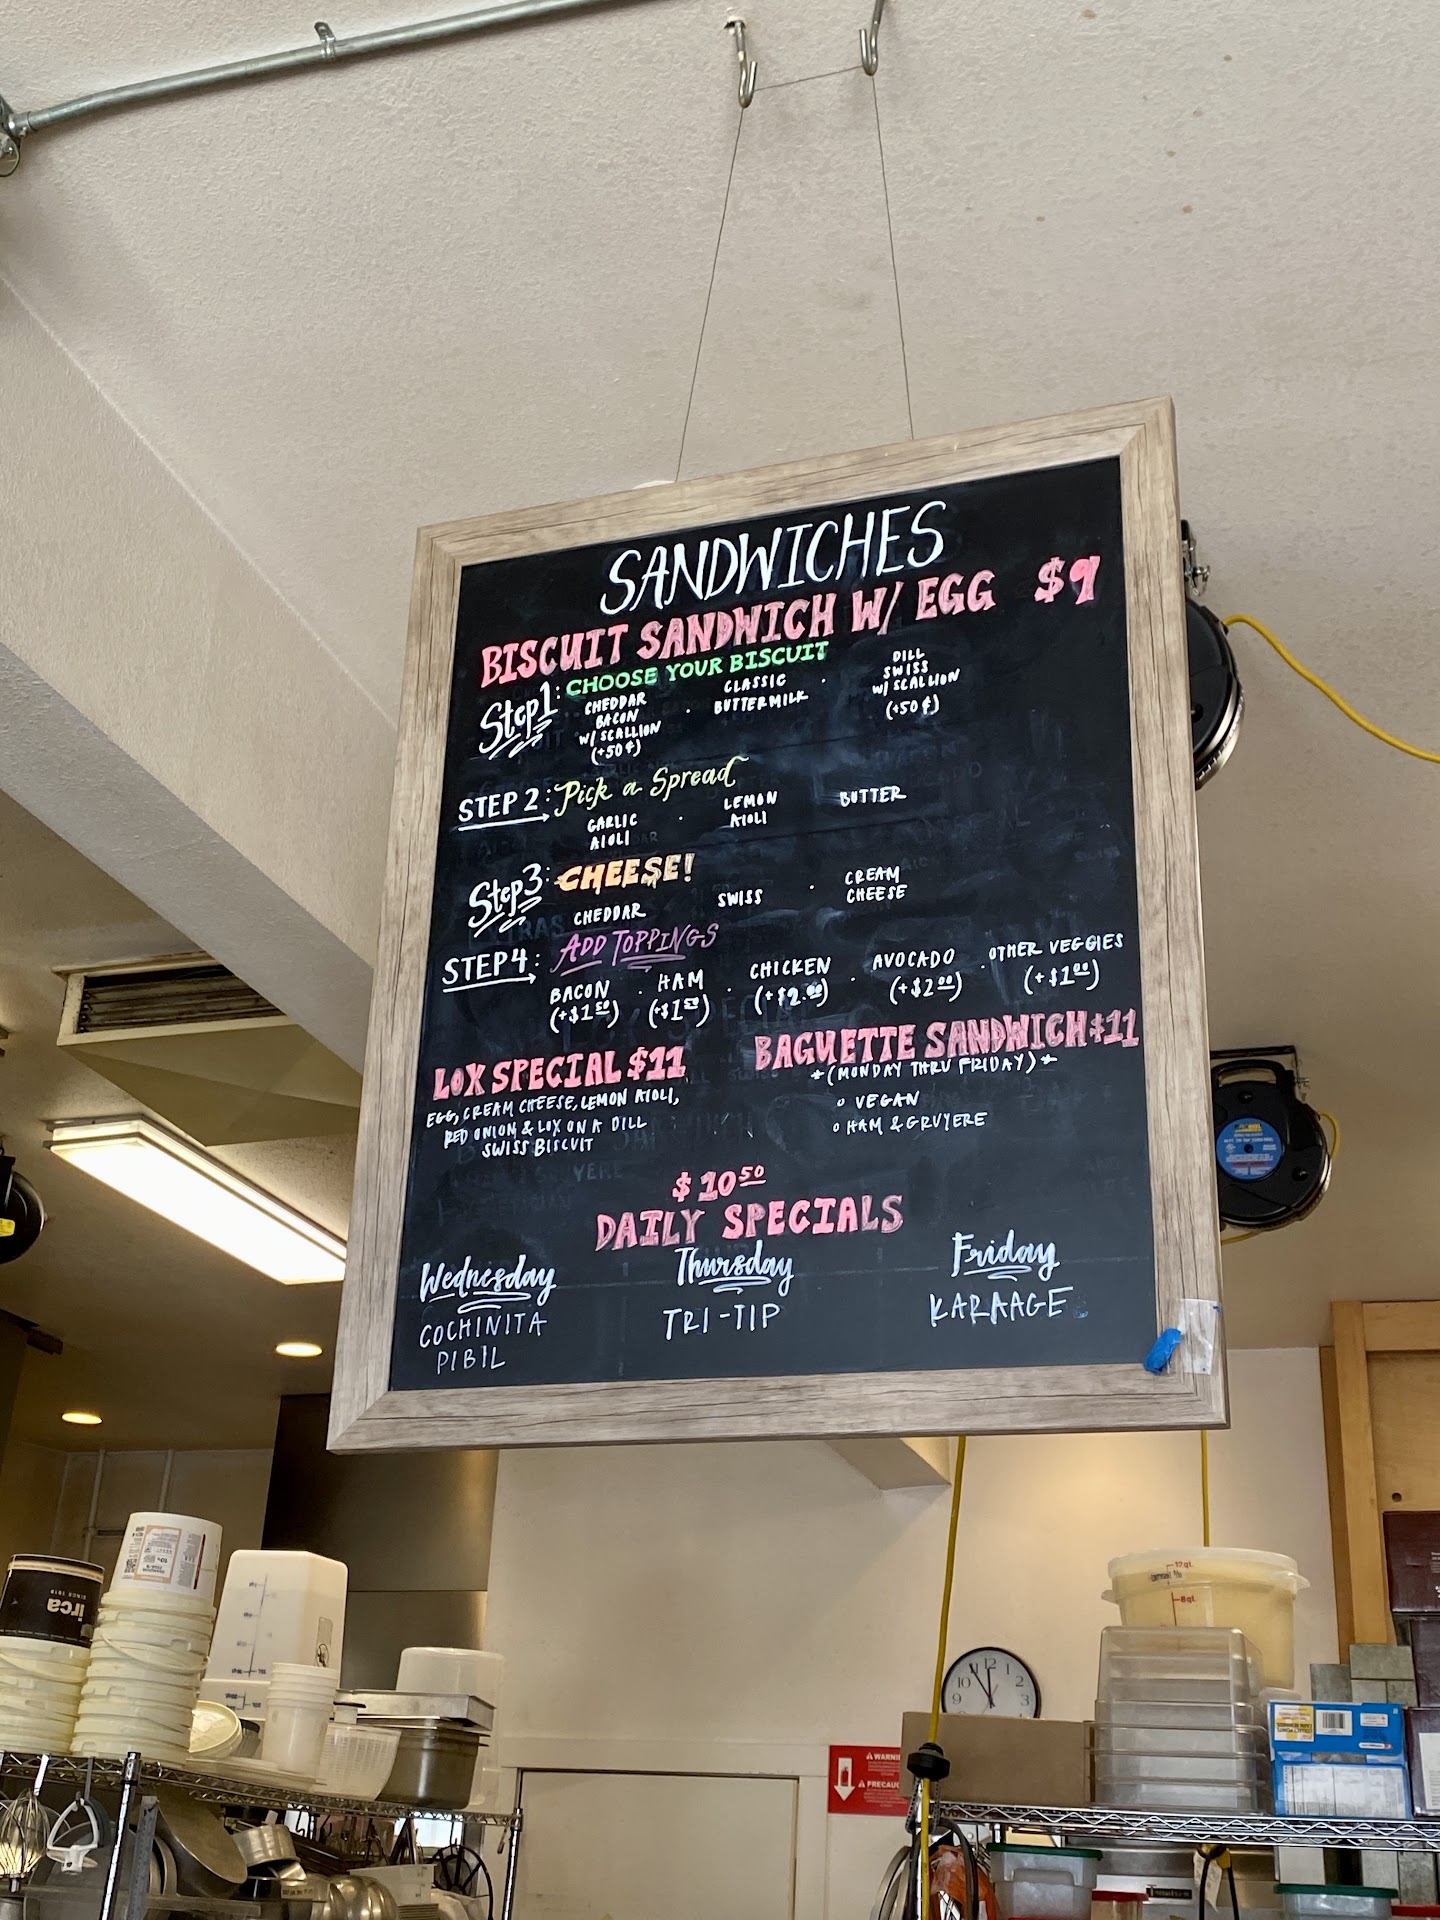 SANDWICHES
BISCUIT SANDWICH W/ EGG $9
Step 1: CHOOSE YOUR BISCUIT
CHEDDAR
BACON
W/ SCALLION
(+50¢)
CLASSIC
BUTTERMILK
DILL
SWISS
W/ SCALLION
(+50¢)
STEP 2: Pick a Spread
GARLIC
AIOLI
LEMON
AIOLI
BUTTER
Step 3: CHEESE!
CHEDDAR
SWISS
CREAM
CHEESE
STEP 4: ADD TOPPINGS
BACON
(+$1.50)
HAM
(+$1.50)
CHICKEN
(+$2.00)
AVOCADO
(+$2.00)
OTHER VEGGIES
(+$1.00)
LOX SPECIAL $11
EGG, CREAM CHEESE, LEMON AIOLI,
RED ONION & LOX ON A DILL
SWISS BISCUIT
BAGUETTE SANDWICH $11
*(MONDAY THRU FRIDAY)*
VEGAN
HAM & GRUYERE
$10.50
DAILY SPECIALS
Wednesday
COCHINITA
PIBIL
Thursday
TRI-TIP
Friday
KARAAGE
irca
12qt.
8qt.
11 12
10 2
9 3
WARNI
PRECAU